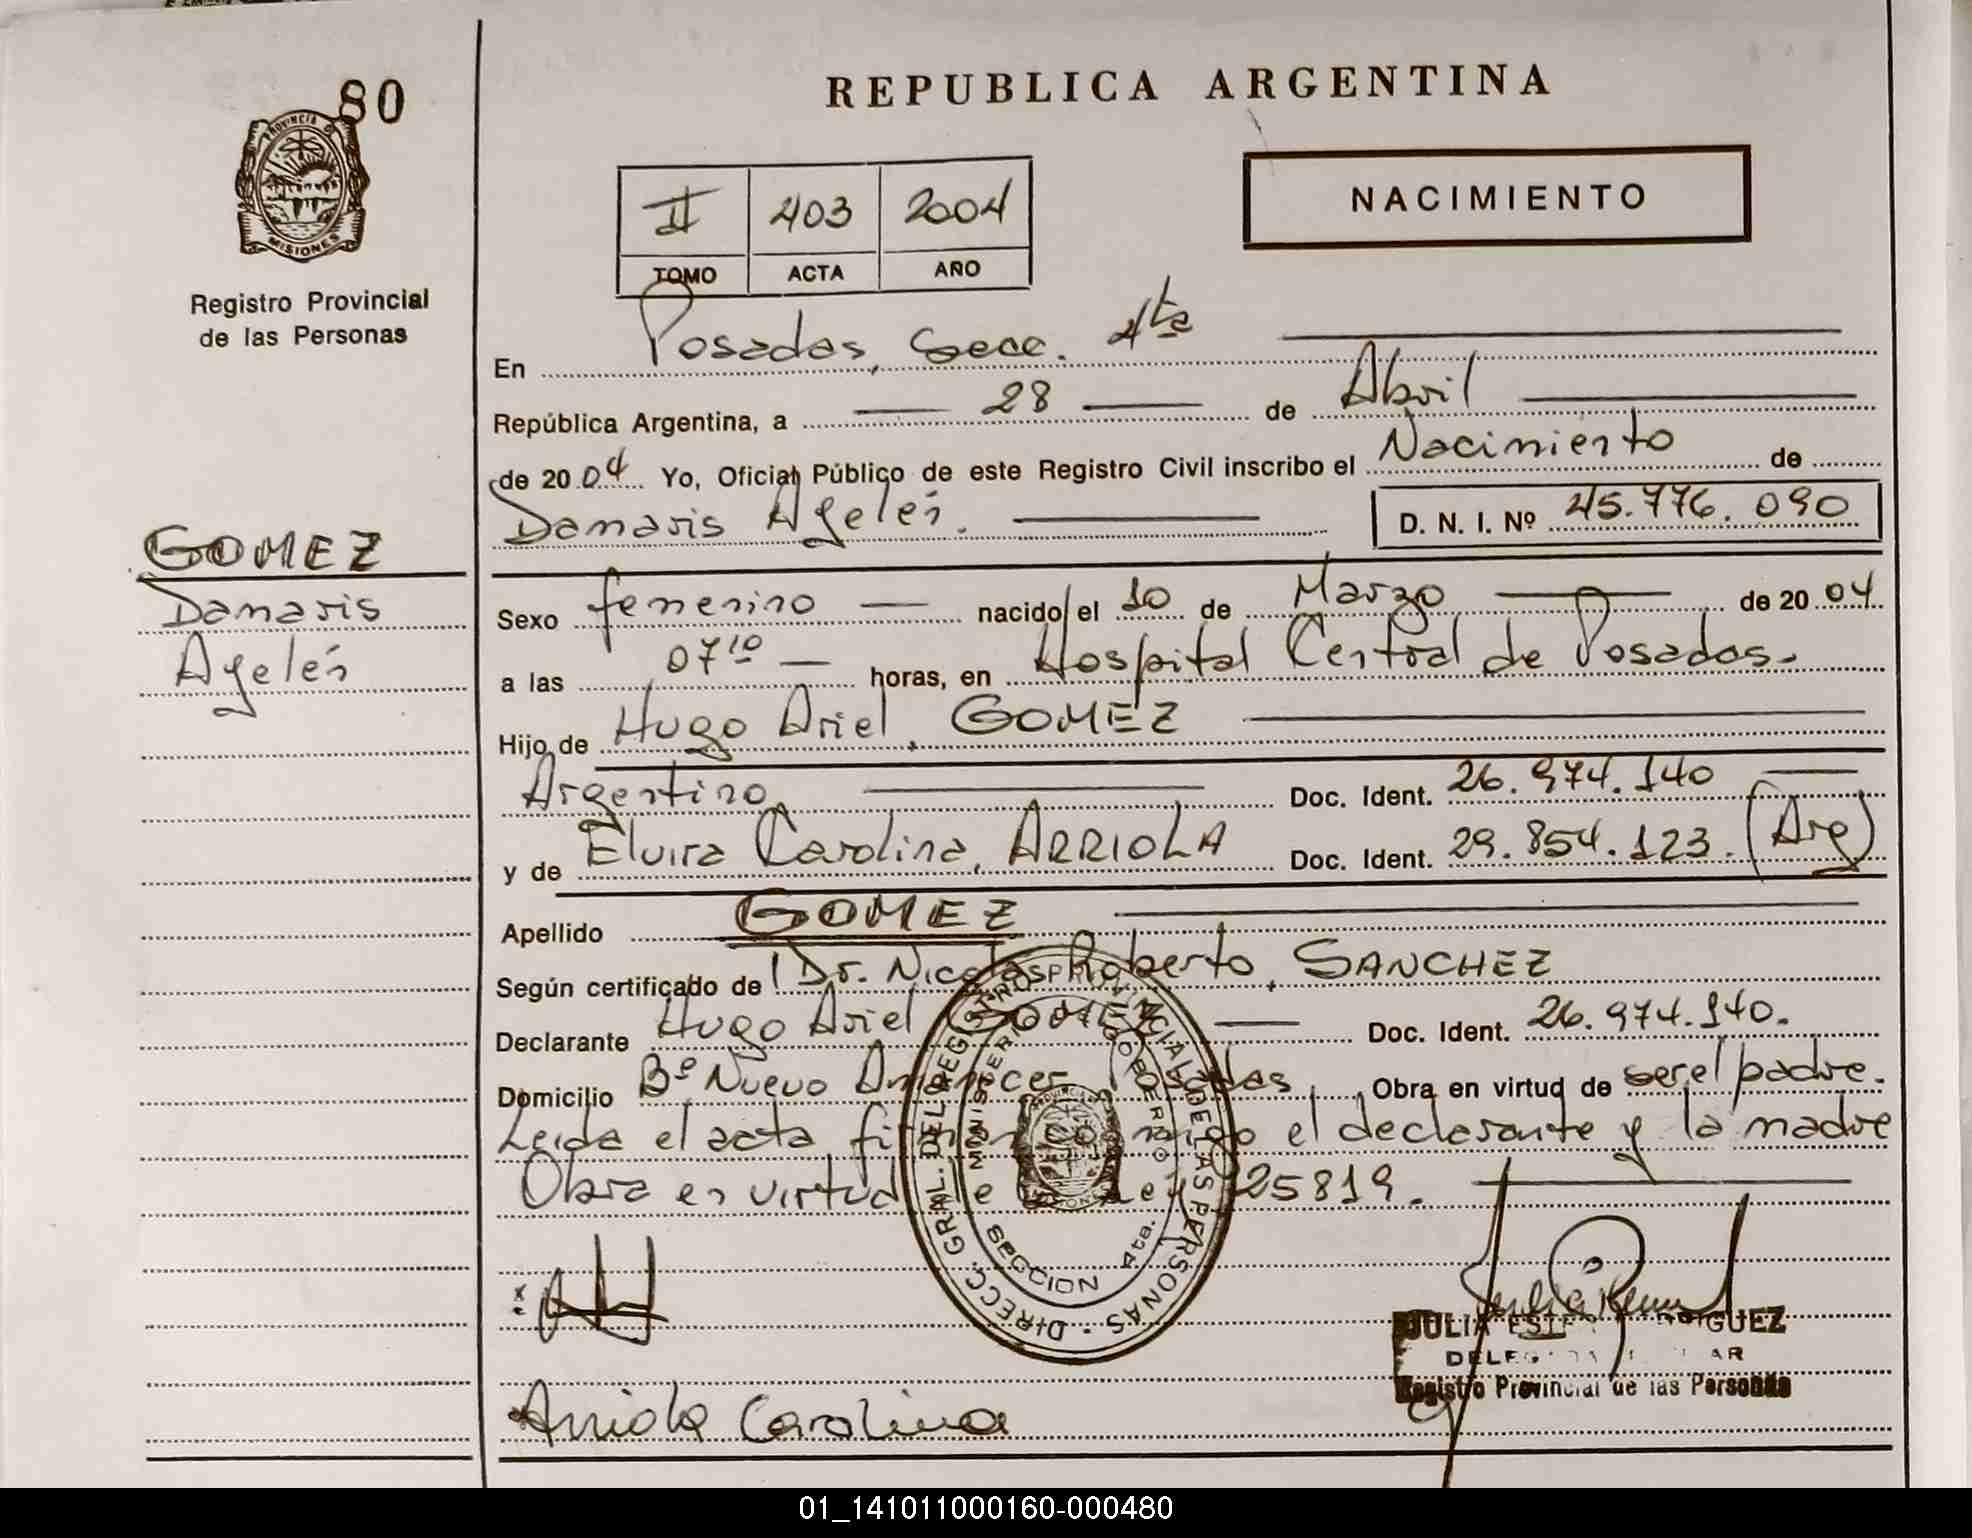 80
PROVINCIA DE
MISIONES
Registro Provincial
de las Personas
REPUBLICA ARGENTINA
II 403 2004
TOMO ACTA AÑO
NACIMIENTO
En Posadas, Secc. 4ta
República Argentina, a 28 de Abril
de 2004 Yo, Oficial Público de este Registro Civil inscribo el Nacimiento de
Damaris Ayelén. D. N. I. Nº 45.776.090
GOMEZ
Damaris
Ayelén
Sexo femenino nacido el 10 de Marzo de 2004
a las 07 10 horas, en Hospital Central de Posadas.
Hijo de Hugo Ariel, GOMEZ
Argentino, Doc. Ident. 26.974.140
y de Elvira Carolina, ARRIOLA Doc. Ident. 29.854.123. (Arg)
Apellido GOMEZ
Según certificado de Dr. Nicolas Roberto, SANCHEZ
Declarante Hugo Ariel GOMEZ Doc. Ident. 26.974.140.
Domicilio Bº Nuevo Amanecer Posadas Obra en virtud de ser el padre.
Leida el acta firman conmigo el declarante y la madre
Obra en virtud de la Ley 25819.
DIRECC. GRAL. DEL REGISTRO PROVINCIAL DE LAS PERSONAS
MINISTERIO GOBIERNO
SECCION 4ta.
JULIA ESTER RODRIGUEZ
Registro Provincial de las Personas
Arriola Carolina
01_141011000160-000480